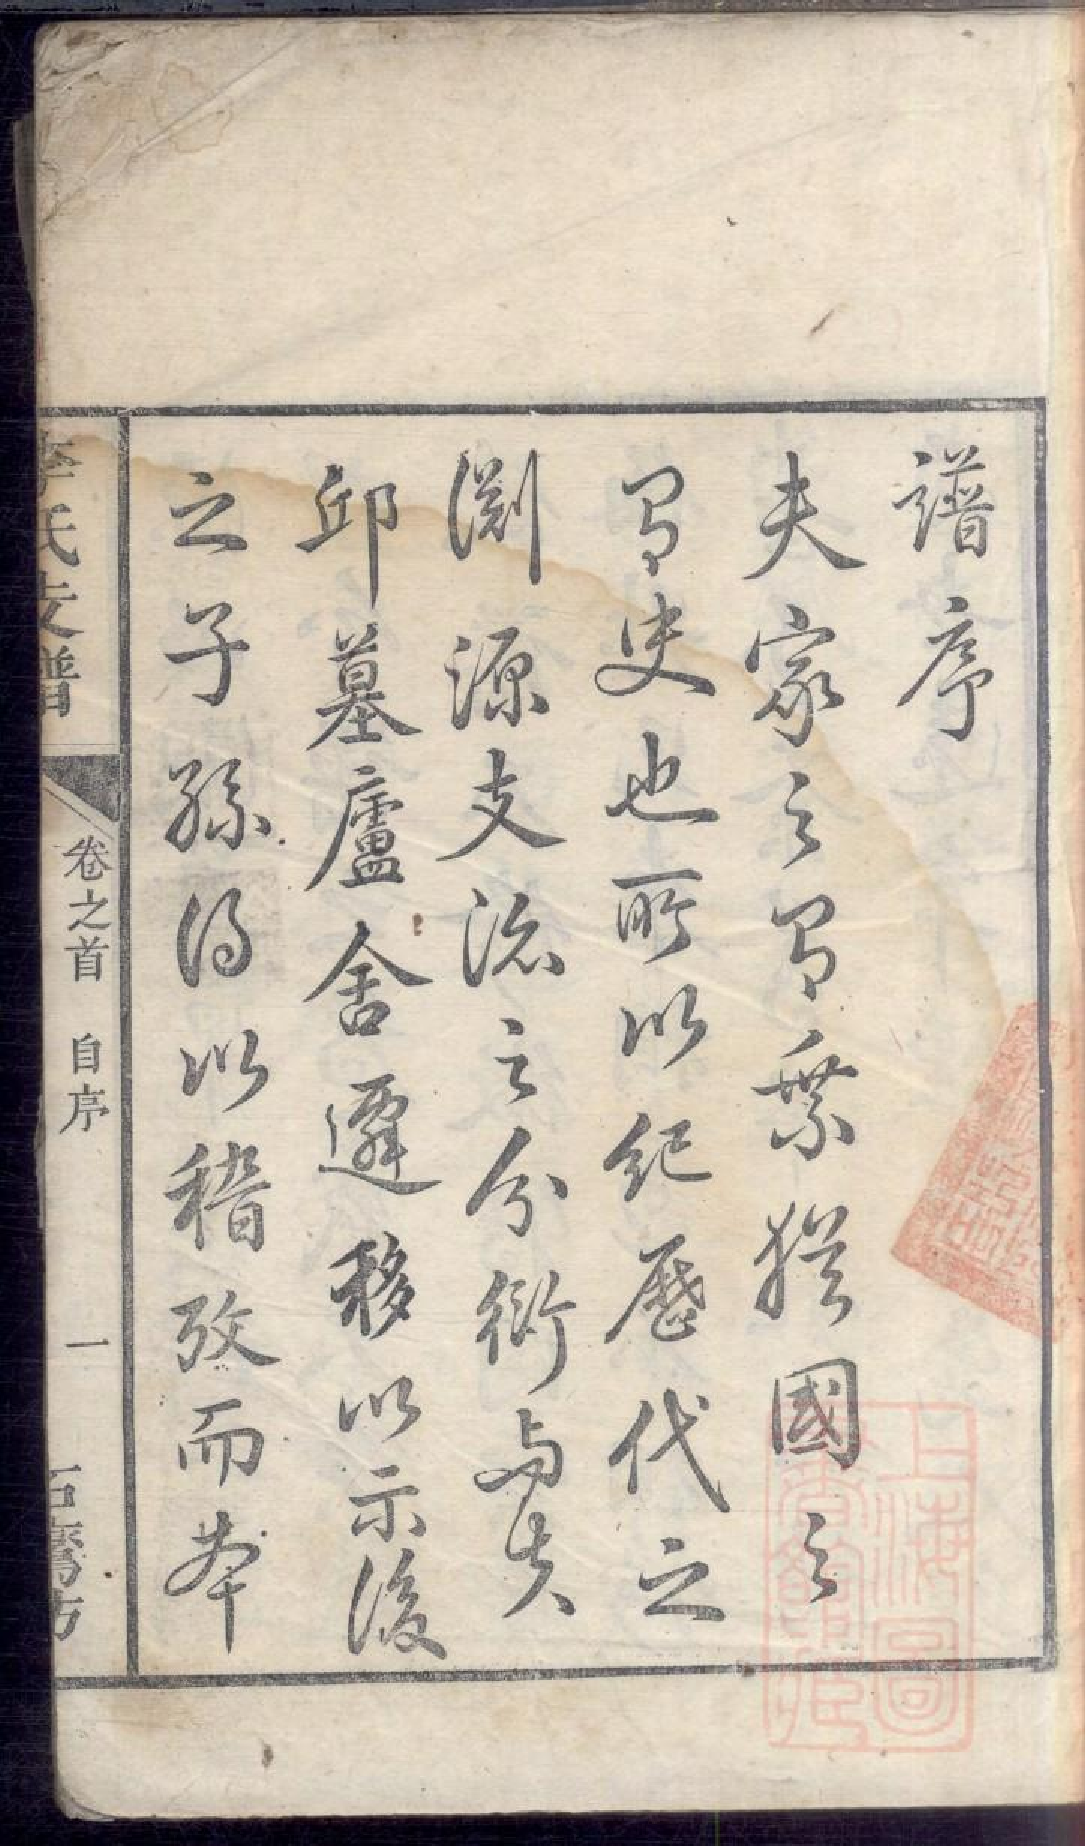 譜序
夫家之有乘猶國之
有史也所以紀歷代之
淵源支流之分衍与夫
邱墓廬舍遷移以示後
之子孫得以稽攷而本
李氏支譜
卷之首 自序
一
上海圖書館藏